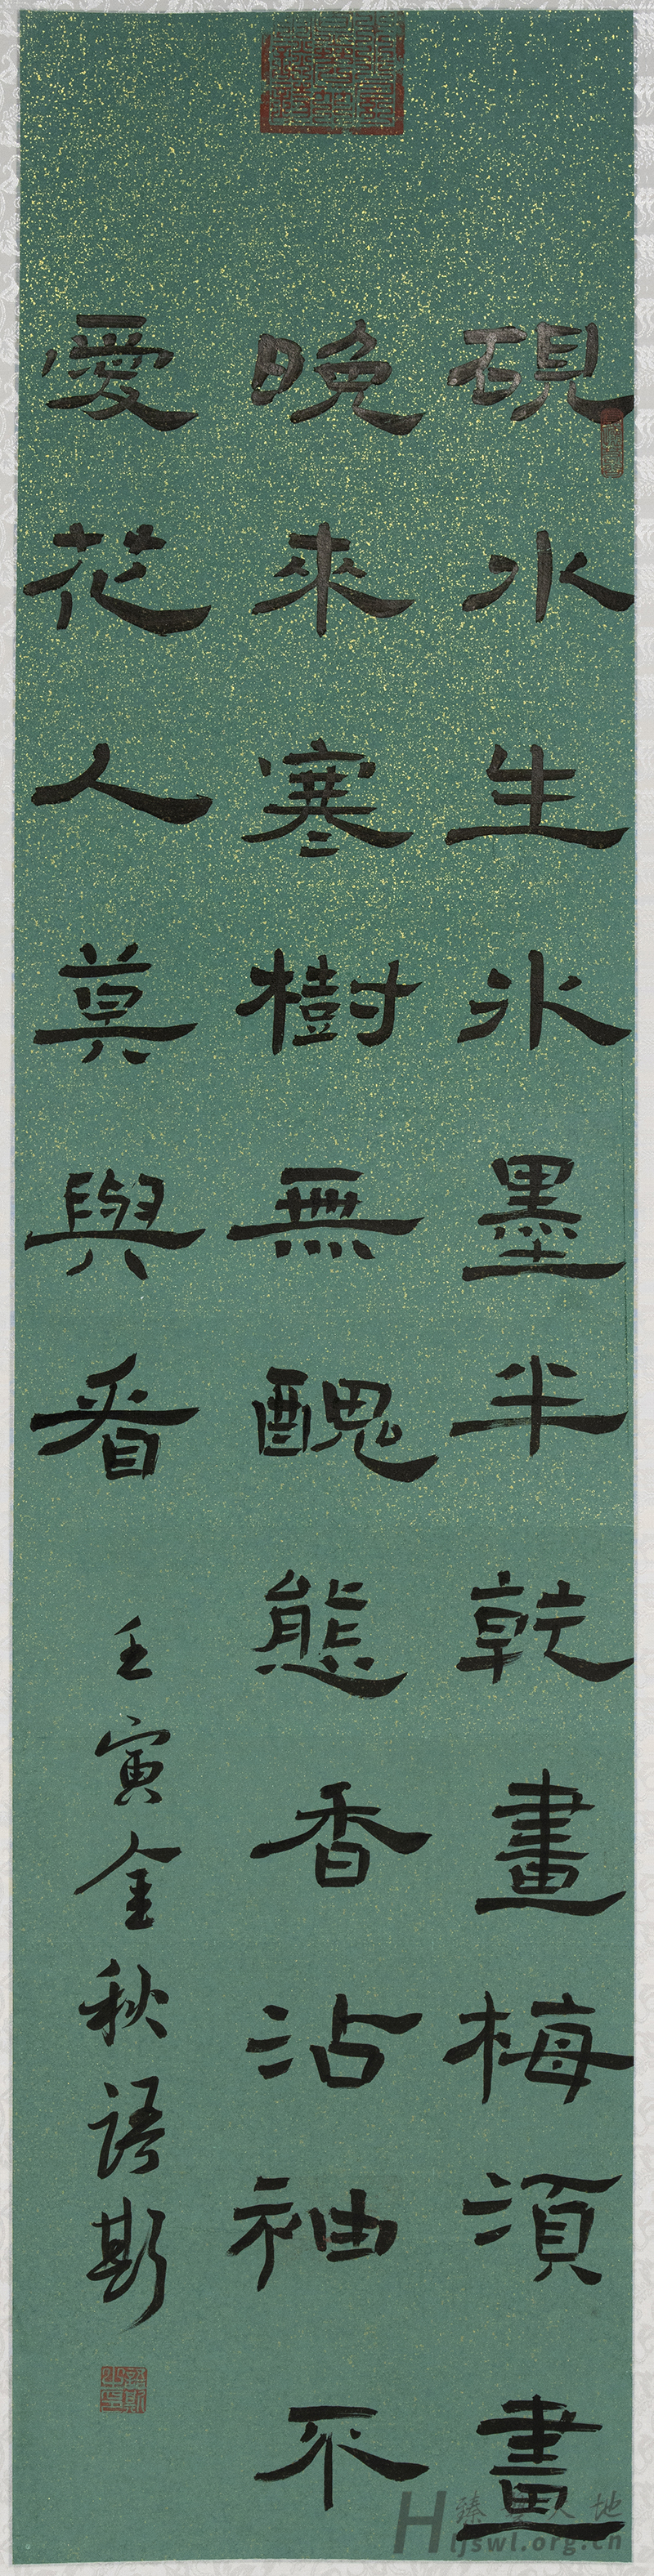 硯水生氷墨半乾畫梅湏畫
晚來寒樹無醜態香沾袖不
愛花人莫與看
壬寅金秋語斯
語斯
臻
人地
Hljswl.org.cn